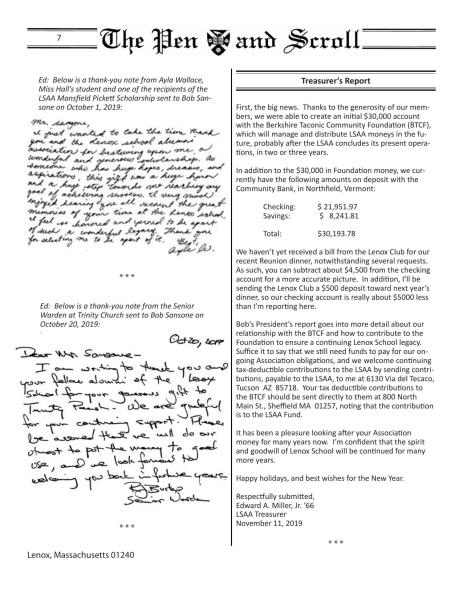 7
The Pen and Scroll
Ed: Below is a thank-you note from Ayla Wallace,
Miss Hall's student and one of the recipients of the
LSAA Mansfield Pickett Scholarship sent to Bob San-
sone on October 1, 2019:
Mr. Sansone,
I just wanted to take the time thank
you and the Lenox school alumni
association for bestowing upon me a
wonderful and generous scholarship. As
someone who has huge hopes, dreams, and
aspirations, this gift was a huge honor
and a huge step towards me reaching my
goal of achieving success. I very much
enjoyed hearing you all recount the great
memories of your time at the Lenox school.
I feel so honored and proud to be apart
of such a wonderful legacy. Thank you
for selecting me to be apart of it.
Best,
Ayla W.
* * *
Ed: Below is a thank-you note from the Senior
Warden at Trinity Church sent to Bob Sansone on
October 20, 2019:
Oct 20, 2019
Dear Mr. Sansone-
I am writing to thank you and
your fellow alumni of the Lenox
School for your generous gift to
Trinity Parish. We are grateful
for your continuing support. Please
be assured that we will do our
utmost to put the money to good
use, and we look forward to
welcoming you back in future years.
Senior Warden
* * *
Lenox, Massachusetts 01240
Treasurer's Report
First, the big news. Thanks to the generosity of our mem-
bers, we were able to create an initial $30,000 account
with the Berkshire Taconic Community Foundation (BTCF),
which will manage and distribute LSAA moneys in the fu-
ture, probably after the LSAA concludes its present opera-
tions, in two or three years.
In addition to the $30,000 in Foundation money, we cur-
rently have the following amounts on deposit with the
Community Bank, in Northfield, Vermont:
Checking: $ 21,951.97
Savings: $ 8,241.81
Total: $30,193.78
We haven't yet received a bill from the Lenox Club for our
recent Reunion dinner, notwithstanding several requests.
As such, you can subtract about $4,500 from the checking
account for a more accurate picture. In addition, I'll be
sending the Lenox Club a $500 deposit toward next year's
dinner, so our checking account is really about $5000 less
than I'm reporting here.
Bob's President's report goes into more detail about our
relationship with the BTCF and how to contribute to the
Foundation to ensure a continuing Lenox School legacy.
Suffice it to say that we still need funds to pay for our on-
going Association obligations, and we welcome continuing
tax-deductible contributions to the LSAA by sending contri-
butions, payable to the LSAA, to me at 6130 Via del Tecaco,
Tucson AZ 85718. Your tax deductible contributions to
the BTCF should be sent directly to them at 800 North
Main St., Sheffield MA 01257, noting that the contribution
is to the LSAA Fund.
It has been a pleasure looking after your Association
money for many years now. I'm confident that the spirit
and goodwill of Lenox School will be continued for many
more years.
Happy holidays, and best wishes for the New Year.
Respectfully submitted,
Edward A. Miller, Jr. '66
LSAA Treasurer
November 11, 2019
* * *